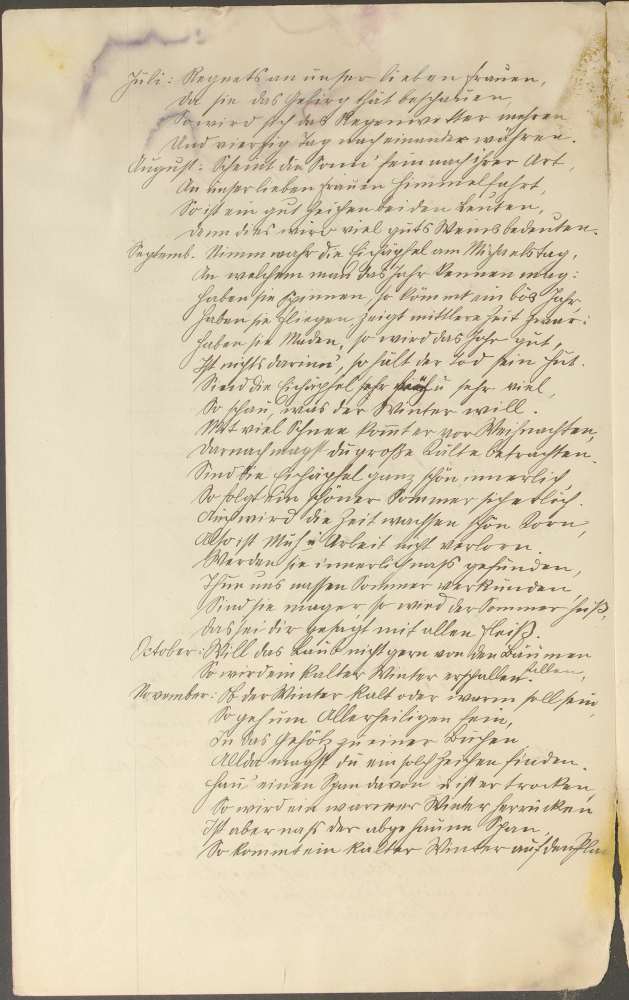 Juli: Regnets an unser lieben Frauen,
Da sie das Gebirg thät beschauen,
So wird sich das Regenwetter mehren
Und vierzig Tag nach einander währen.
August: Scheint die Sonn' fein nach ihrer Art,
An unser lieben Frauen Himmelfahrt,
So ist ein gut Zeichen bei den Leuten,
Denn das wird viel guts Weins bedeuten.
Septemb. Nimm wahr die Eichäpfel am Michaelstag,
An welchem man das Jahr kennen mag:
Haben sie Spinnen, so kömmt ein bös Jahr
Haben sie Fliegen zeigt mittlere Zeit zwar:
Haben sie Maden, so wird das Jahr gut,
Ist nichts darinn', so hält der Tod sein Hut.
Sind die Eichäpfel sehr früh u sehr viel,
So schau, was der Winter will.
Mit viel Schnee kommt er vor Weihnachten,
Darnach magst du große Kälte betrachten.
Sind die Eichäpfel ganz schön innerlich
So folgt ein schöner Sommer sicherlich.
Auch wird die Zeit wachsen schön Korn,
Also ist Müh u Arbeit nicht verlorn.
Werden sie innerlich naß gefunden,
Thun uns nassen Sommer verkünden
Sind sie mager so wird der Sommer heiß,
Das sei dir gesagt mit allen Fleiß.
October: Will das Laub nicht gern von den Bäumen
fallen,
So wird ein kalter Winter erschallen.
November: Ob der Winter kalt oder warm soll sein,
So geh um Allerheiligen fein,
In das Gehölz zu einer Buchen
Allda magst du ein solch Zeichen finden.
Hau' einen Span davon u ist er trocken,
So wird ein warmer Winter herrücken
Ist aber naß der abgehaune Span,
So kommt ein kalter Winter auf den Plan